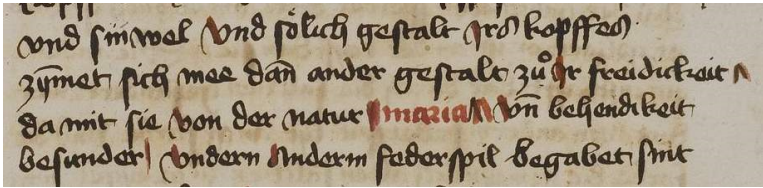 vnd sinwel Vnd sölich gestalt Irs kopffes
zymet sich mee dañ ander gestalt zuͦ Ir freidickeit
da mit sie von der natur maria vñ behendikeit
besunder vndern anderm federspil begabet sint